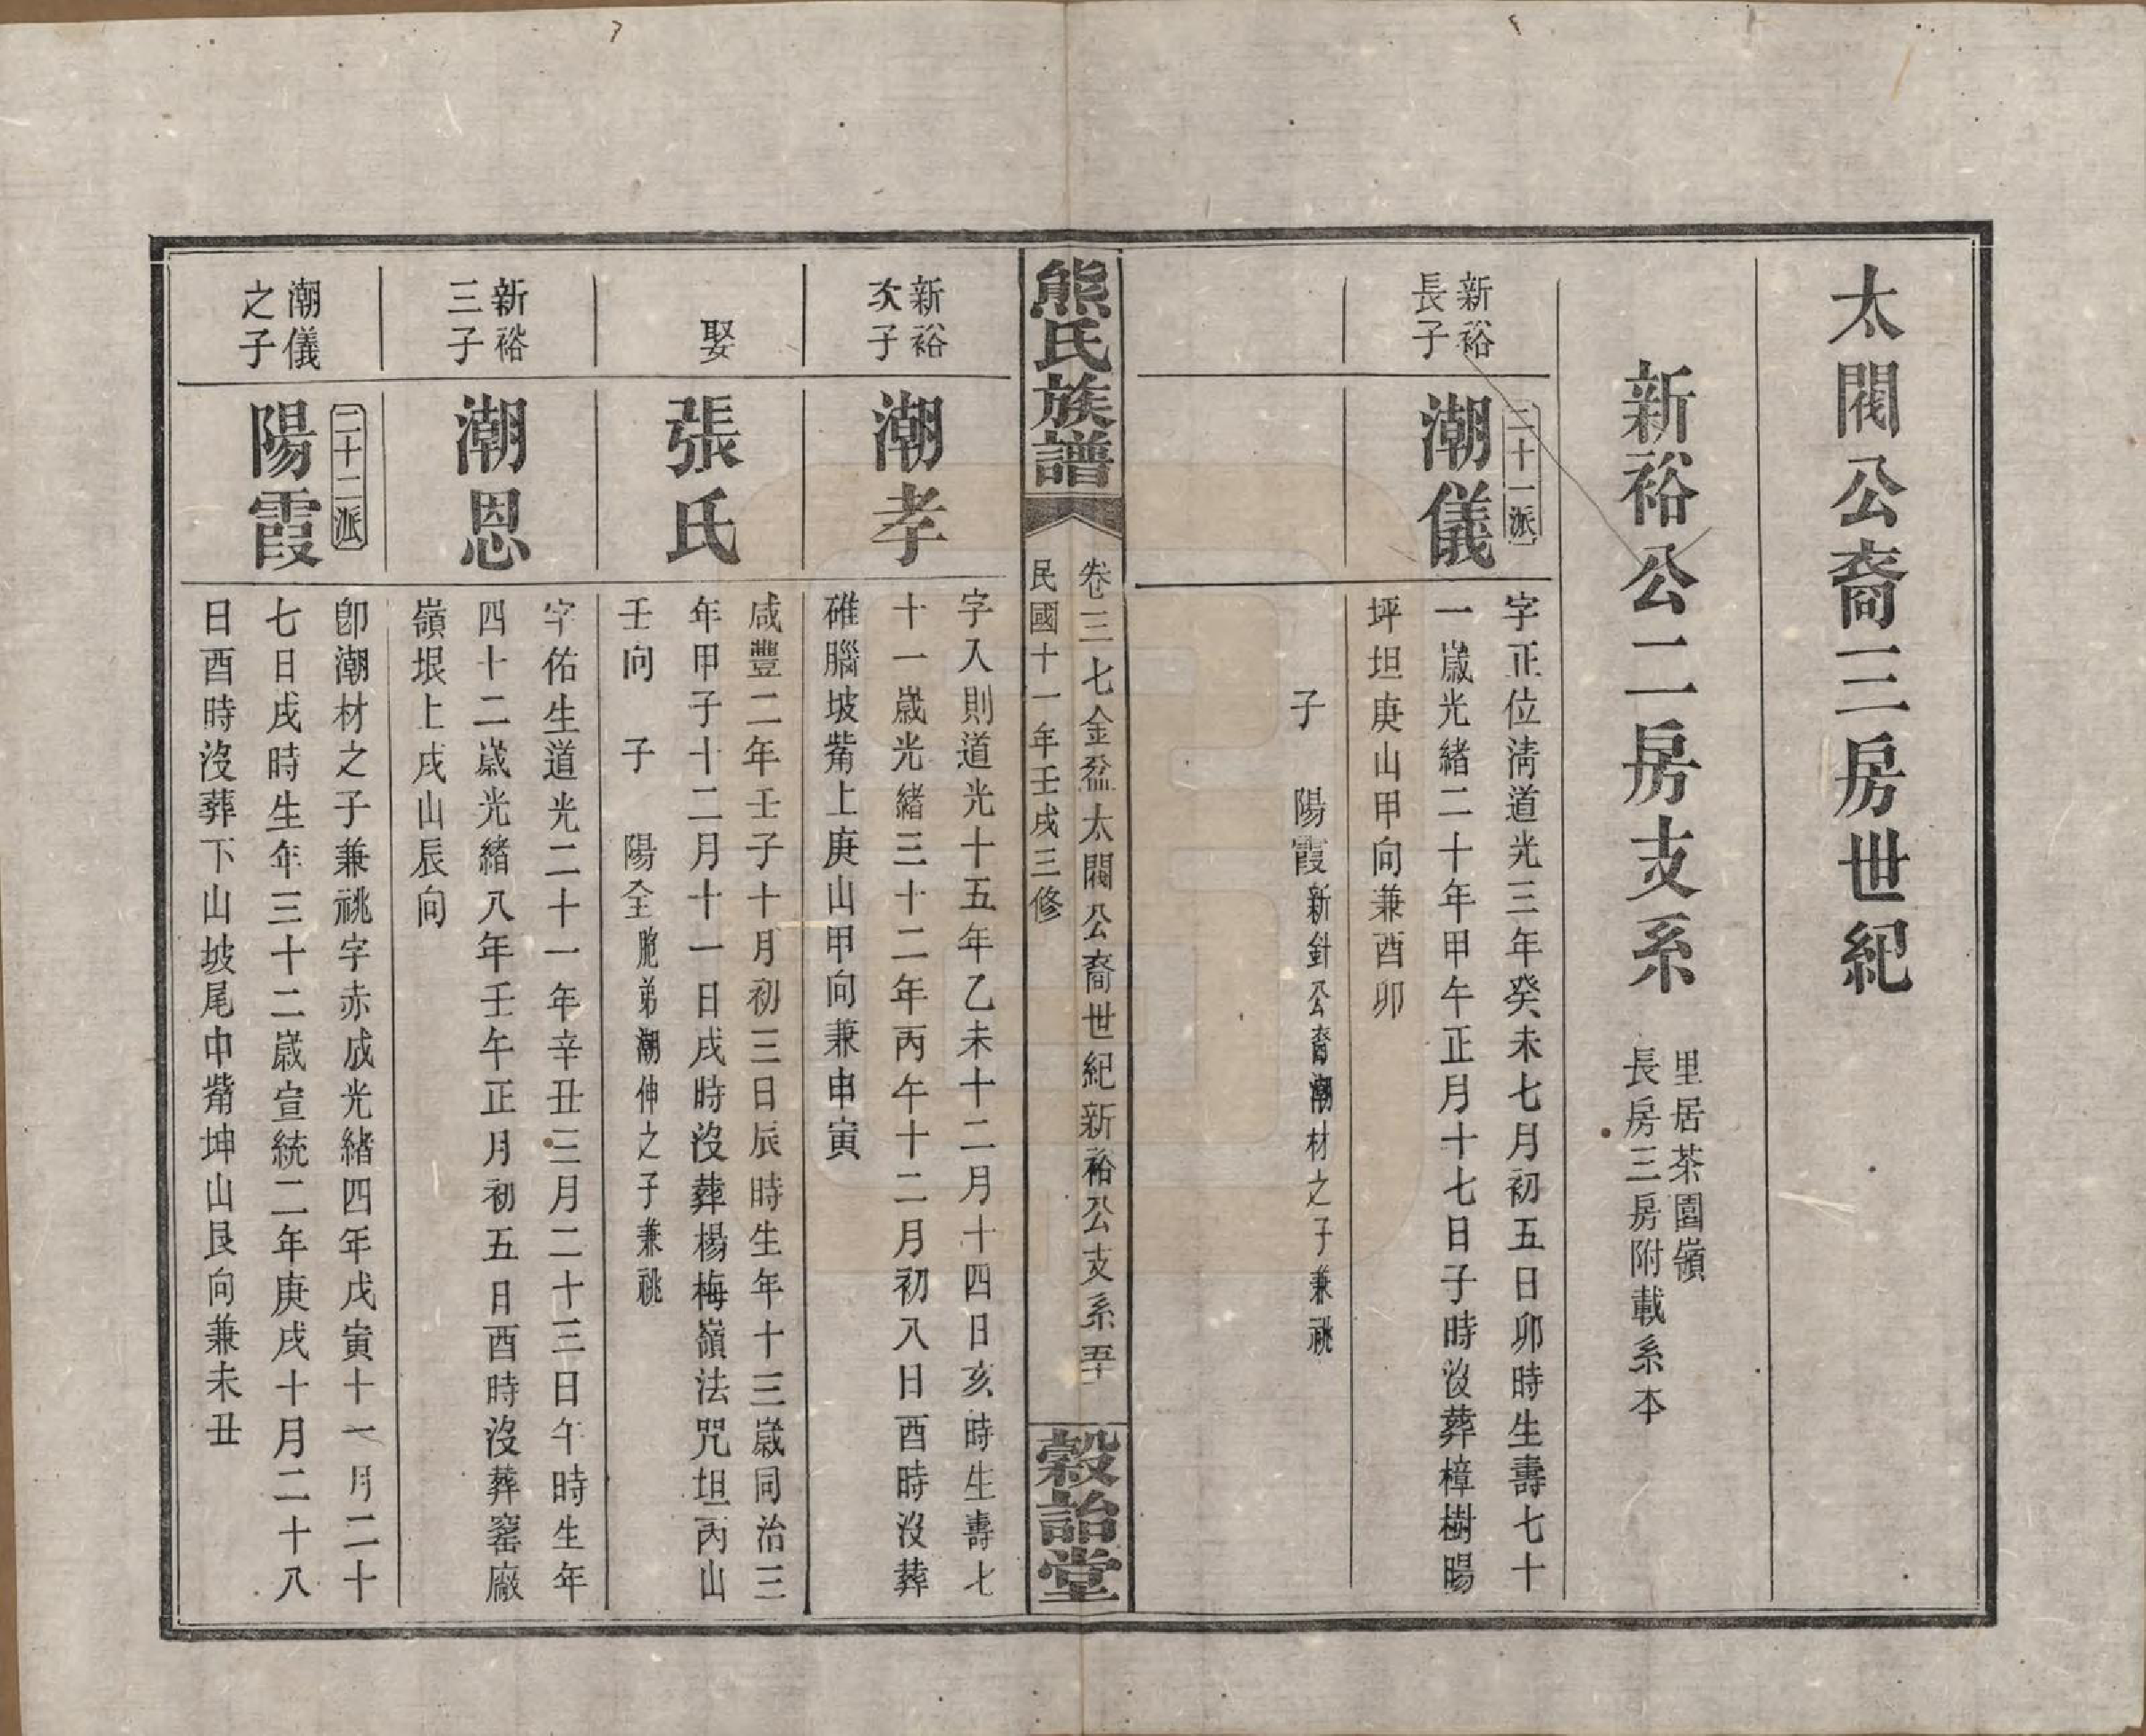 太閥公裔三房世紀
新裕公二房支系
里居茶園嶺
長房三房附載系本
新裕
長子
二十一派
潮儀
字正位淸道光三年癸未七月初五日卯時生壽七十
一歲光緒二十年甲午正月十七日子時沒葬樟樹暘
坪坦庚山甲向兼酉卯
子　陽霞新針公裔潮材之子兼祧
熊氏族譜
卷三七金盆太閥公裔世紀新裕公支系五十
民國十一年壬戌三修
穀詒堂
新裕
次子
潮孝
字入則道光十五年乙未十二月十四日亥時生壽七
十一歲光緒三十二年丙午十二月初八日酉時沒葬
碓腦坡觜上庚山甲向兼申寅
娶
張氏
咸豐二年壬子十月初三日辰時生年十三歲同治三
年甲子十二月十一日戌時沒葬楊梅嶺法咒坦丙山
壬向　子　陽全胞弟潮伸之子兼祧
新裕
三子
潮恩
字佑生道光二十一年辛丑三月二十三日午時生年
四十二歲光緒八年壬午正月初五日酉時沒葬窰廠
嶺垠上戌山辰向
潮儀
之子
二十二派
陽霞
卽潮材之子兼祧字赤成光緒四年戊寅十一月二十
七日戌時生年三十二歲宣統二年庚戌十月二十八
日酉時沒葬下山坡尾中觜坤山艮向兼未丑